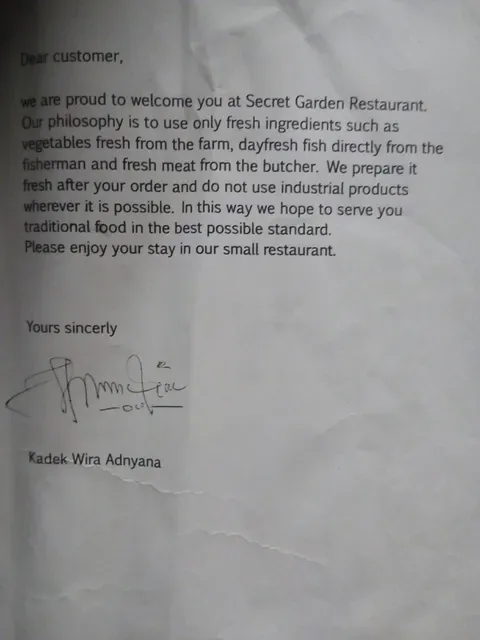 Dear customer,
we are proud to welcome you at Secret Garden Restaurant.
Our philosophy is to use only fresh ingredients such as
vegetables fresh from the farm, dayfresh fish directly from the
fisherman and fresh meat from the butcher. We prepare it
fresh after your order and do not use industrial products
wherever it is possible. In this way we hope to serve you
traditional food in the best possible standard.
Please enjoy your stay in our small restaurant.
Yours sincerly
Kadek Wira Adnyana